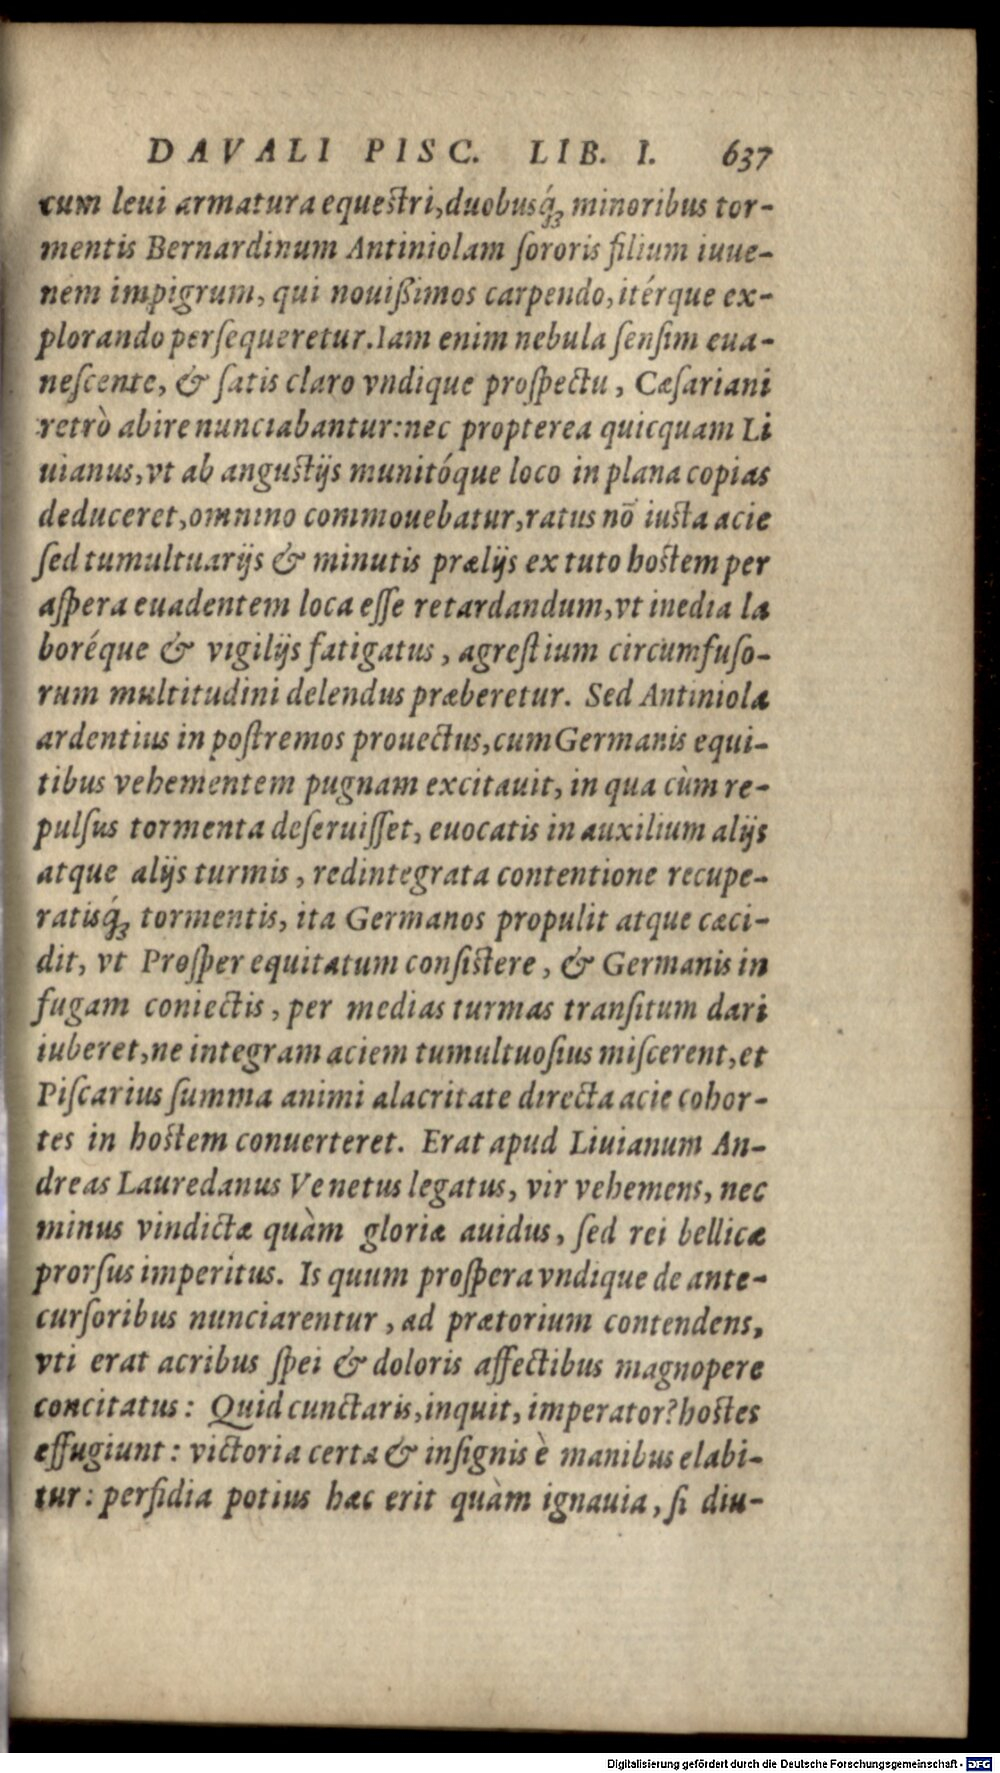 DAVALI PISC. LIB. I. 637
cum leui armatura equeſtri, duobusq́; minoribus tor-
mentis Bernardinum Antiniolam ſororis filium iuue-
nem impigrum, qui nouißimos carpendo, itérque ex-
plorando perſequeretur. Iam enim nebula ſenſim eua-
neſcente, & ſatis claro vndique proſpectu, Cæſariani
retrò abire nunciabantur: nec propterea quicquam Li
uianus, vt ab anguſtijs munitóque loco in plana copias
deduceret, omnino commouebatur, ratus nō iusta acie
ſed tumultuarijs & minutis prælijs ex tuto hoſtem per
aſpera euadentem loca eſſe retardandum, vt inedia la
boréque & vigilijs fatigatus, agreſtium circumfuſo-
rum multitudini delendus præberetur. Sed Antiniola
ardentius in poſtremos prouectus, cum Germanis equi-
tibus vehementem pugnam excitauit, in qua cùm re-
pulſus tormenta deſeruiſſet, euocatis in auxilium alijs
atque alijs turmis, redintegrata contentione recupe-
ratisq́; tormentis, ita Germanos propulit atque cæci-
dit, vt Proſper equitatum conſiſtere, & Germanis in
fugam coniectis, per medias turmas tranſitum dari
iuberet, ne integram aciem tumultuoſius miſcerent, et
Piſcarius ſumma animi alacritate directa acie cohor-
tes in hoſtem conuerteret. Erat apud Liuianum An-
dreas Lauredanus Venetus legatus, vir vehemens, nec
minus vindictæ quàm gloriæ auidus, ſed rei bellicæ
prorſus imperitus. Is quum proſpera vndique de ante-
curſoribus nunciarentur, ad prætorium contendens,
vti erat acribus ſpei & doloris affectibus magnopere
concitatus: Quid cunctaris, inquit, imperator? hoſtes
effugiunt: victoria certa & inſignis è manibus elabi-
tur: perfidia potius hæc erit quàm ignauia, ſi diu-
Digitalisierung gefördert durch die Deutsche Forschungsgemeinschaft - DFG